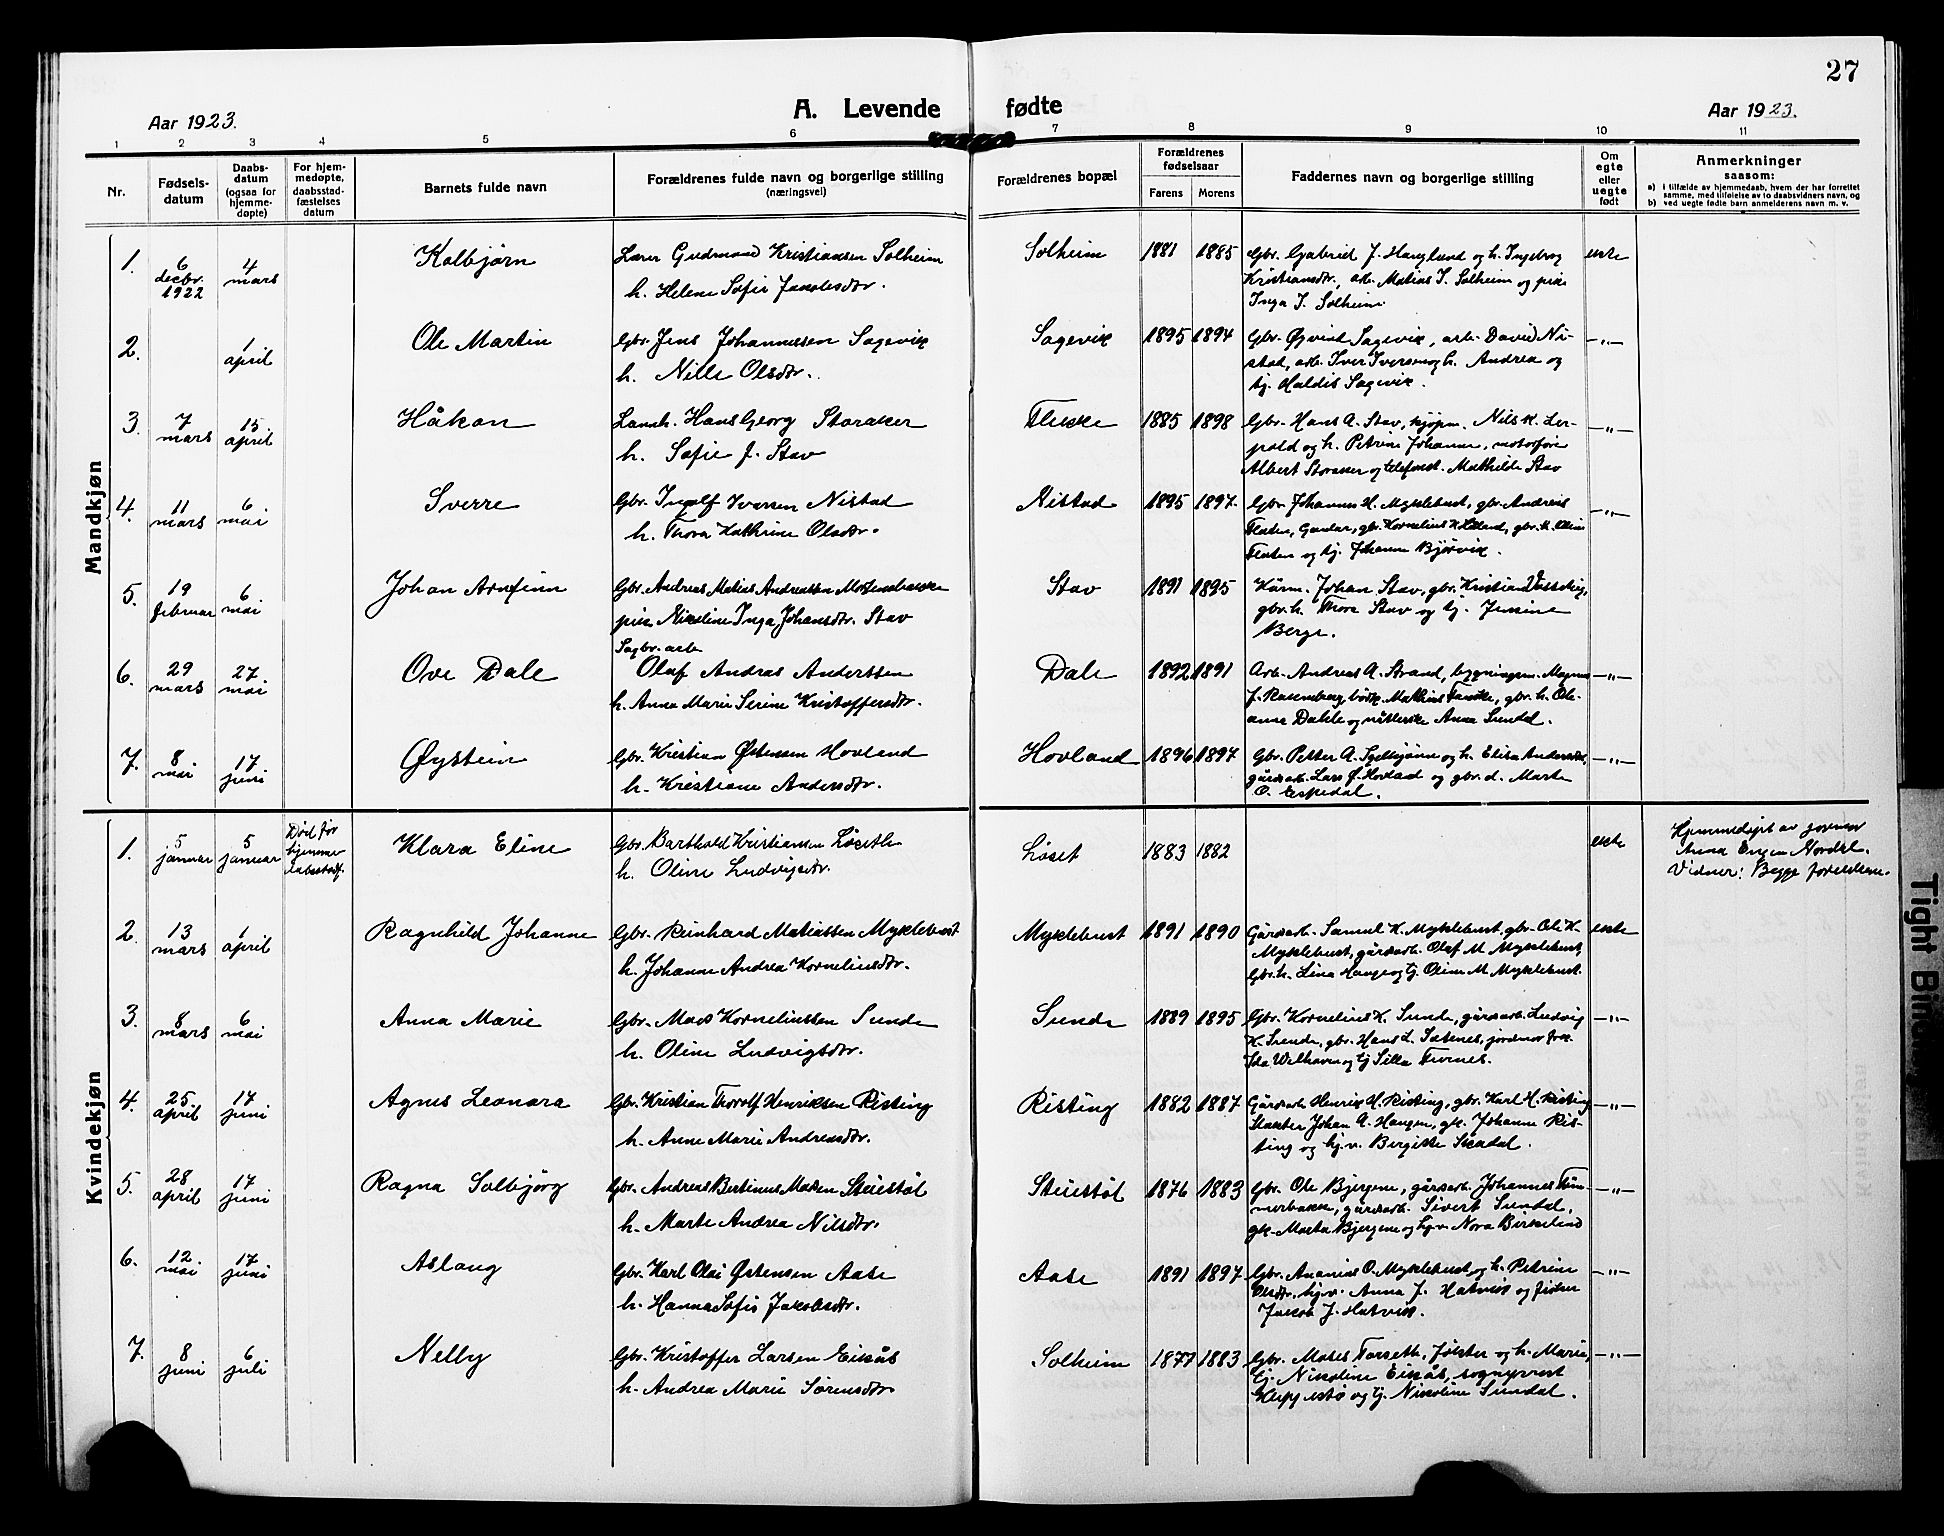 27
Aar 1923.
A. Levende fødte
Aar 1923.
1 2 3 4 5 6 7 8 9 10 11
Nr.
Fødsels-
datum
Daabs-
datum
(ogsaa for
hjemme-
døpte)
For hjem-
medøpte,
daabsstad-
fæstelses
datum
Barnets fulde navn
Forældrenes fulde navn og borgerlige stilling
(næringsvei)
Forældrenes bopæl
Forældrenes
fødselsaar
Farens Morens
Faddernes navn og borgerlige stilling
Om
egte
eller
uegte
født
Anmerkninger
saasom:
a) i tilfælde av hjemmedaab, hvem der har forrettet
samme, med tilføielse av to daabsvidners navn, og
b) ved uegte fødte barn anmelderens navn m. v.
Mandkjøn
1. 6 decbr. 1922 4 mars Kolbjørn
Lærer Gudmund Kristiansen Solheim
h. Helene Sofie Jakobsdtr.
Solheim 1881 1885
Gbr. Gabriel J. Hauglund og h. Ingeborg
Kristiansdtr., arb. Matias I. Solheim og pike
Inga I. Solheim.
ekte
2. 1 april Ole Martin
Gbr. Jens Johannessen Sagevik
h. Nille Olsdtr.
Sagevik 1895 1894
Gbr. Øyvind Sagevik, arb. David Ni-
stad, arb. Iver Iversen og h. Andrea og
tj. Haldis Sagevik.
—"—
3. 7 mars 15 april Håkon
Landh. Hans Georg Storaker
h. Sofie J. Stav
Flekke 1885 1898
Gbr. Hans A. Stav, kjøpm. Nils K. Ler-
pold og h. Petrine Johanne, motorfører
Albert Storaker og telefonist. Mathilde Stav
—"—
4. 11 mars 6 mai Sverre
Gbr. Ingolf Iversen Nistad
h. Thora Kathrine Olsdtr.
Nistad 1895 1897
Gbr. Johannes H. Myklebust, gbr. Andreas
Flaten, Gaular, gbr. Kornelius K. , gbr. h. Oline
Flaten og tj. Johanne Bjørvik.
—"—
5. 19 februar 6 mai Johan Arnfinn
Gbr. Andreas Matias Andreassen
pike Nikoline Inga Johansdtr. Stav
Stav 1891 1895
Kårm. Johan Stav, gbr. Kristian ,
gbr. h. Thora Stav og tj. Jensine
Berge.
6. 29 mars 27 mai Ove Dale
Sagbr. arb.
Olaf Andras Anderssen
h. Anna Marie Serine Kristoffersdtr.
Dale 1892 1891
Arb. Andreas A. Strand, bygningsm. Magnus
J. Rosenberg, bødk. Mathias , gbr. h. Ole-
anne Dahle og Anna Sundal.
—"—
7. 8 mai 17 juni Øystein
Gbr. Kristian Østensen Hovland
h. Kristiane Andersdtr.
Hovland 1896 1897
Gbr. Petter A. og h. Elisa Andersdtr.,
gårdsarb. Lars Ø. Hovland og gbr. d. Marta
O. Espedal.
—"—
Kvindekjøn
1. 5 januar 5 januar Død før
hjemme-
dåbsstadf.
Klara Eline
Gbr. Barthold Kristiansen Løseth
h. Oline Ludvigsdtr.
Løset 1883 1882
ekte
Hjemmedøpt av jormor
Anna Engen Nordal.
Vidner: Begge foreldrene.
2. 13 mars 1 april Ragnhild Johanne
Gbr. Reinhard Matiassen Myklebust
h. Johanne Andrea Korneliusdtr.
Myklebust 1891 1890
Gårdsarb. Samuel K. Myklebust, gbr. Ole K.
Myklebust, gårdsarb. Olaf M. Myklebust,
Gbr. h. Lina Hauge og tj. Oline M. Myklebust.
ekte
3. 8 mars 6 mai Anna Marie
Gbr. Mads Korneliussen Sunde
h. Oline Ludvigsdtr.
Sunde 1889 1895
Gbr. Kornelius K. Sunde, gårdsarb. Ludvig
K. Sunde, gbr. Hans L. Sætenes, jordmor frk.
Ida Welhaven og tj. Silla Furnes.
—"—
4. 25 april 17 juni Agnes Leonora
Gbr. Kristian Thorolf Henriksen Risting
h. Anne Marie Andreasdtr.
Risting 1882 1887
Gårdsarb. Henrik H. Risting, gbr. Karl H. Risting
Slakter Johan A. Haugen, gk. Johanne Ris-
ting og hj.v. Bergitte Skadal.
—"—
5. 28 april 17 juni Ragna Solbjørg
Gbr. Andreas Bertinus Madsen Steiestøl
h. Marte Andrea Nilsdtr.
Steiestøl 1876 1883
Gbr. Ole Bjergene, gårdsarb. Johannes Tim-
merbakke, gårdsarb. Sivert Sundal,
gk. Marta Bjergene og hj.v. Nora Birkeland
—"—
6. 12 mai 17 juni Aslaug
Gbr. Karl Olai Østensen Aase
h. Hanna Sofie Jakobsdtr.
Aase 1891 1897
Gbr. Ananias O. Myklebust og h. Petrine
Olsdtr. hj.v. Anna J. Hatvik og fisker
Jakob J. Hatvik.
—"—
7. 8 juni 6 juli Nelly
Gbr. Kristoffer Larsen Eikås
h. Andrea Marie Sørensdtr.
Solheim 1877 1883
Gbr. Moses Farseth, Jølster og h. Marie,
tj. Nikoline Eikås, sogneprest
Kleppestø og tj. Nikoline Sundal.
—"—
Tight Bin